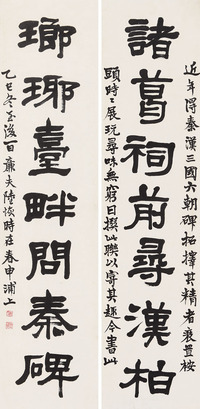 諸葛祠前尋漢柏
近年得秦漢三國六朝碑拓擇其精者裒置桉
頭時時展玩尋味無窮日撰此聯以寄其趣今書此
瑯琊臺畔問秦碑
乙巳冬至後一日廉夫陸恢時在春申浦上